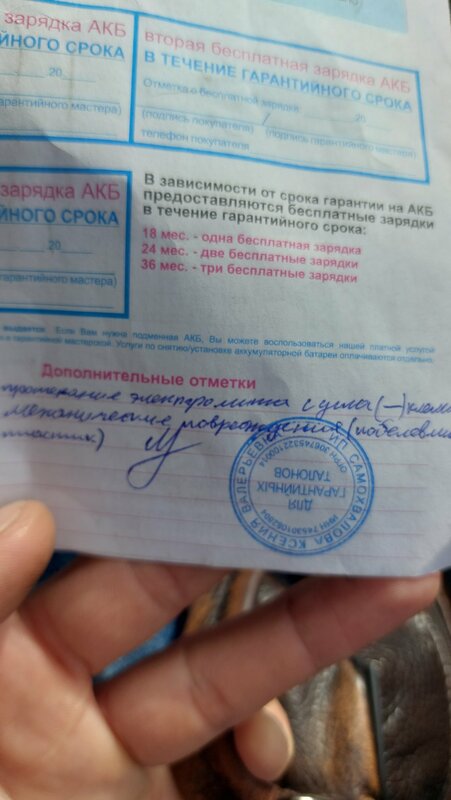 зарядка АКБ
ЙНОГО СРОКА
20
гарантийного мастера)
вторая бесплатная зарядка АКБ
В ТЕЧЕНИЕ ГАРАНТИЙНОГО СРОКА
Отметка о бесплатной зарядке 20
(подпись покупателя) / (подпись гарантийного мастера)
телефон покупателя
зарядка АКБ
ЙНОГО СРОКА
20
гарантийного мастера)
В зависимости от срока гарантии на АКБ
предоставляются бесплатные зарядки
в течение гарантийного срока:
18 мес. - одна бесплатная зарядка
24 мес. - две бесплатные зарядки
36 мес. - три бесплатные зарядки
выдается. Если Вам нужна подменная АКБ, Вы можете воспользоваться нашей платной услугой
в гарантийной мастерской. Услуги по снятию/установке аккумуляторной батареи оплачиваются отдельно.
Дополнительные отметки
протекание электролита с угла (—)
механические повреждения (побелевш
пластик)
ИП САМОХВАЛОВА КСЕНИЯ ВАЛЕРЬЕВНА
ДЛЯ
ГАРАНТИЙНЫХ
ТАЛОНОВ